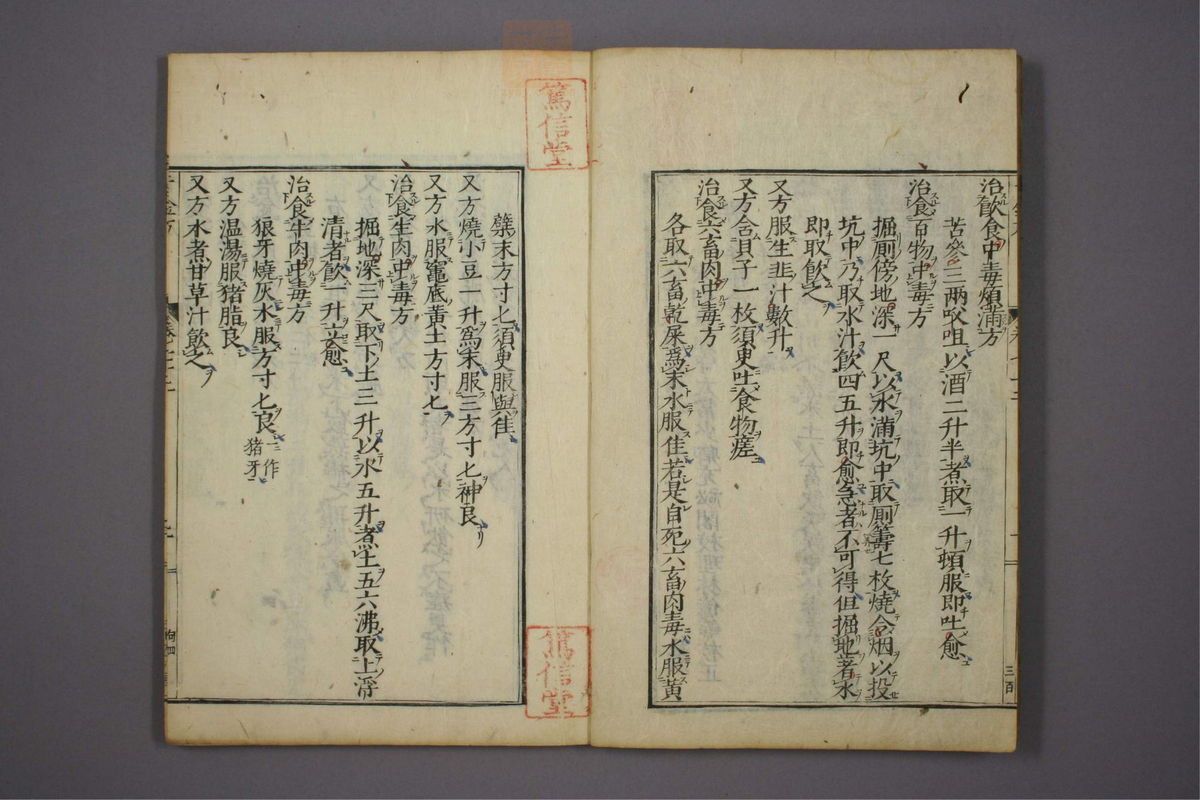 治飲食中毒煩滿方
苦參三兩㕮咀以酒二升半煮取一升頓服即吐愈
治食百物中毒方
掘厠傍地深一尺以水滿坑中取厠籌七枚燒令烟以投
坑中乃取水汁飲四五升即愈急者不可得但掘地著水
即取飲之
又方服生韭汁數升
又方含貝子一枚須臾吐食物瘥
治食六畜肉中毒方
各取六畜乾屎爲末水服佳若是自死六畜肉毒水服黃
蘗末方寸匕須臾服與佳
又方燒小豆一升爲末服三方寸匕神良
又方水服竈底黃土方寸匕
治食生肉中毒方
掘地深三尺取下土三升以水五升煮土五六沸取上
清者飲一升立愈
治食牛肉中毒方
狼牙燒灰水服方寸匕良一作猪牙
又方温湯服猪脂良
又方水煮甘草汁飲之
篤信堂
篤信堂